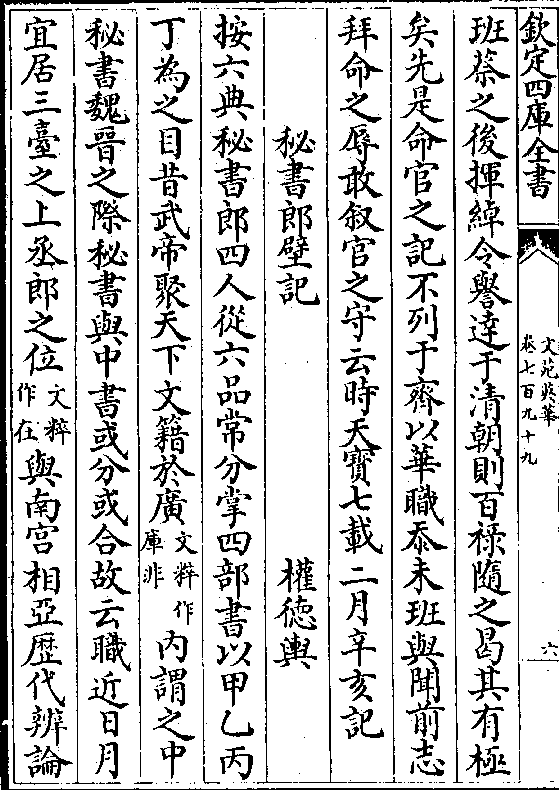 欽定四庫全書
文苑英華
卷七百九十九
六
班蔡之後揮綽令譽逹于清朝則百祿隨之曷其有極
矣先是命官之記不列于齋以華職忝未班與聞前志
拜命之辱敢叙官之守云時天寶七載二月辛亥記
秘書郎壁記 權德輿
按六典秘書郎四人從六品常分掌四部書以甲乙丙
丁為之目昔武帝聚天下文籍於廣文粹作庫非內謂之中
秘書魏晉之際秘書與中書或分或合故云職近日月
宜居三臺之上丞郎之位文粹作在與南宮相亞歴代辨論